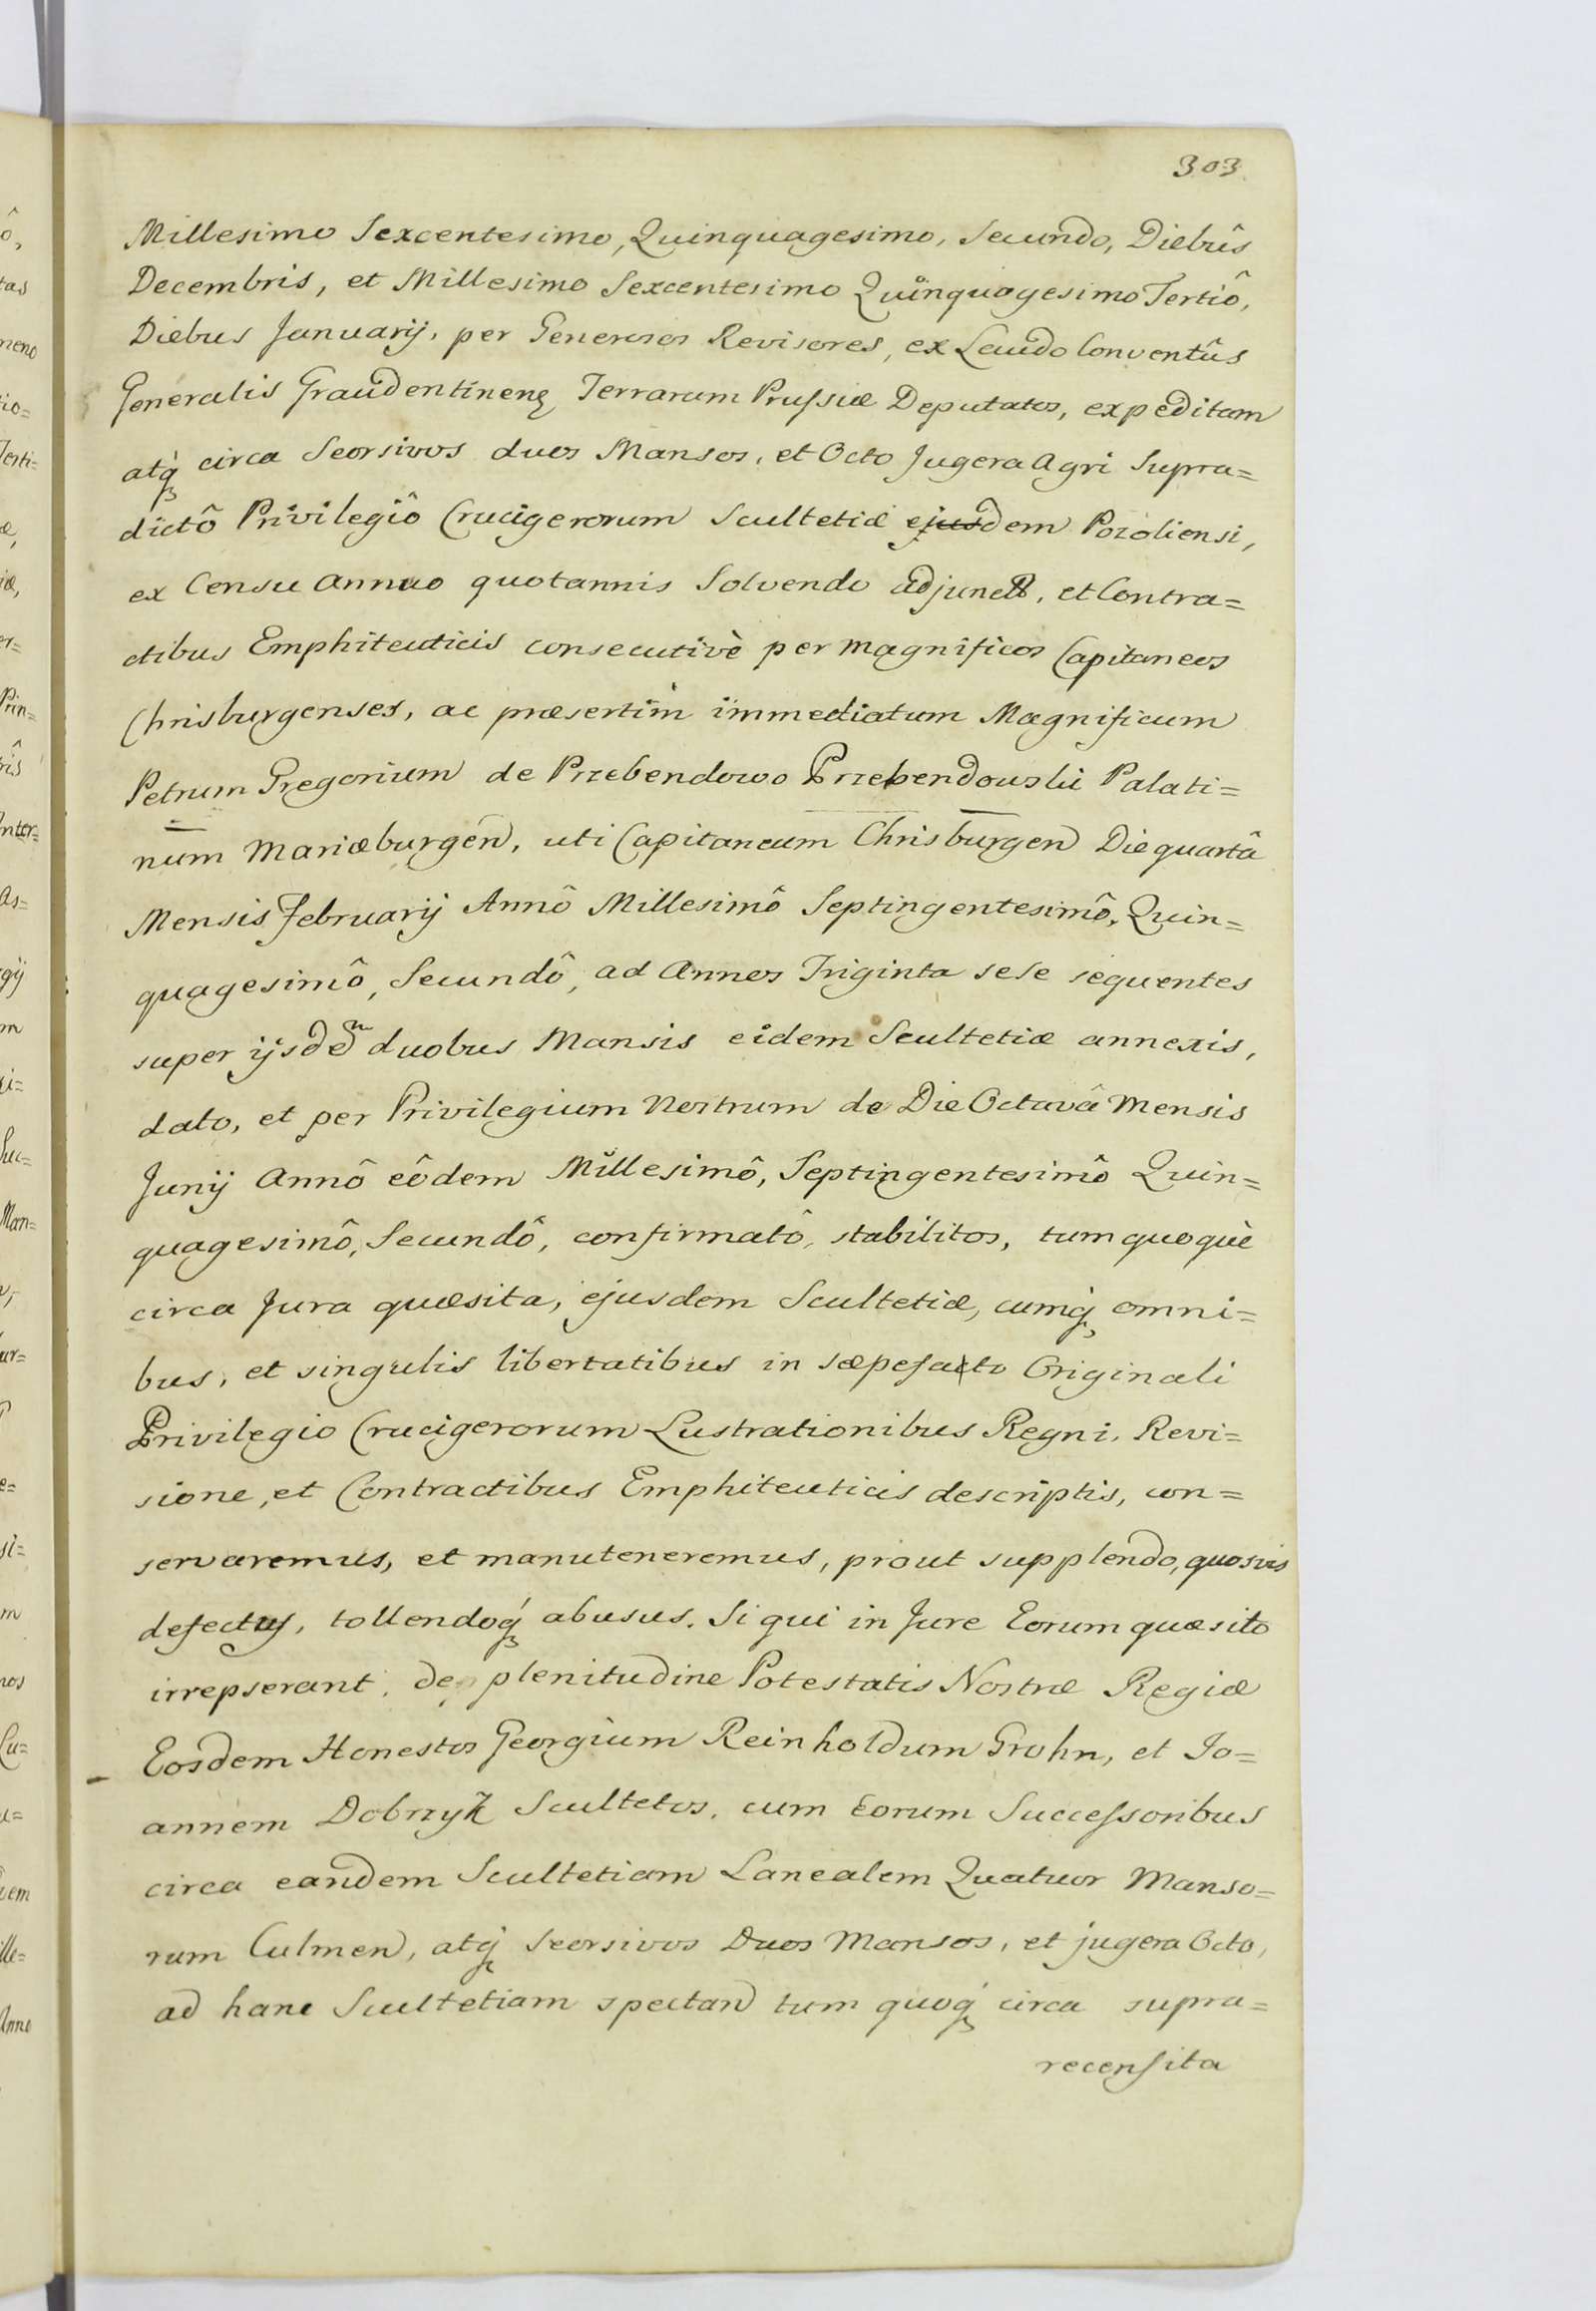 303.
Millesimo Sexcentesimo, Quinquagesimo, Secundo, Diebûs
Decembris, et Millesimo Sexcentesimo Quinquagesimo Tertiô,
Diebus Januarij, per Generosos Revisores, ex Laudo Conventûs
Generalis Graudentinens Terrarum Prussiæ Deputatos, expeditam
atq́ circa Seorsivos duos Mansos, et Octo Jugera Agri Supra=
dictô Privilegiô Crucigerorum Scultetiæ ejusdem Pozoliensi,
ex Censu Annuo quotannis Solvendo adjunctos, et Contra=
ctibus Emphiteuticis consecutivè per Magnificos Capitaneos
Chrisburgenses, ac præsertim immediatum Magnificum
Petrum Gregorium de Przebendowo Przebendowski Palati=
num Mariæburgen, uti Capitaneum Chrisburgen Die quartâ
Mensis Februarij Annô Millesimô Septingentesimô, Quin=
quagesimô, Secundô, ad Annos Triginta sese sequentes
super ijsdem duobus Mansis eidem Scultetiæ annexis,
dato, et per Privilegium Nostrum de Die Octavâ Mensis
Junij Annô eôdem Millesimô, Septingentesimô Quin=
quagesimô, Secundô, confirmatô, stabilitos, tum quoquè
circa Jura quæsita, ejusdem Scultetiæ, cumq́ omni=
bus, et singulis libertatibus in sæpefato Originali
Privilegio Crucigerorum Lustrationibus Regni, Revi=
sione, et Contractibus Emphiteuticis descriptis, con=
servaremus, et manuteneremus, prout supplendo, quosvis
defectus, tollendoq́ abusus. Si qui in Jure Eorum quæsito
irrepserant, de plenitudine Potestatis Nostræ Regiæ
Eosdem Honestos Georgium Reinholdum Grohn, et Jo=
annem Dobrzyk Scultetos, cum Eorum Successoribus
circa eandem Scultetiam Lanealem Quatuor Manso=
rum Culmen, atq́ Seorsivos Duos Mansos, et jugera Octo,
ad hanc Scultetiam spectan tum quoq́ circa supra=
recensita